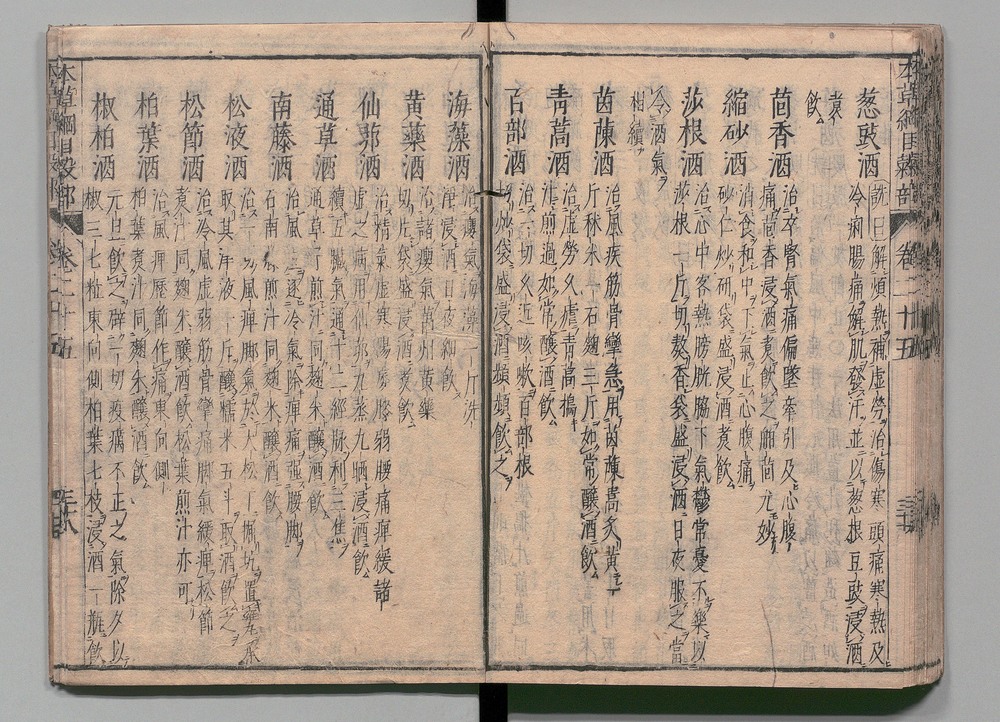 葱豉酒 詵曰解煩熱補虛勞治傷寒頭痛寒熱及
冷痢腸痛解肌發汗並以葱根豆豉浸酒
煑飲
茴香酒 治卒腎氣痛偏墜牽引及心腹
痛茴香浸酒煑飲之舶茴尤妙
縮砂酒 消食和中下氣止心腹痛
砂仁炒研袋盛浸酒煑飲
莎根酒 治心中客熱膀胱脇下氣鬱常憂不樂以
莎根一斤切熬香袋盛浸酒日夜服之常
令酒氣
相續
茵蔯酒 治風疾筋骨攣急用茵蔯蒿炙黃一
斤秫米一石麴三斤如常釀酒飲
青蒿酒 治虛勞久瘧青蒿搗
汁煎過如常釀酒飲
百部酒 治一切久近咳嗽百部根
切炒袋盛浸酒頻頻飲之
海藻酒 治癭氣海藻一斤洗
淨浸酒日夜細飲
黃藥酒 治諸癭氣萬州黃藥
切片袋盛浸酒煑飲
仙茆酒 治精氣虛寒陽痿膝弱腰痛痺緩諸
虛之病用仙茆九蒸九晒浸酒飲
通草酒 續五臟氣通十二經脉利三焦
通草子煎汁同麴米釀酒飲
南藤酒 治風虛逐冷氣除痺痛強腰脚
石南藤煎汁同麴米釀酒飲
松液酒 治一切風痺脚氣於大松下掘坑置甕承
取其津液一斤釀糯米五斗取酒飲之
松節酒 治冷風虛弱筋骨攣痛脚氣緩痺松節
煑汁同麴米釀酒飲松葉煎汁亦可
柏葉酒 治風痺歷節作痛東向側
柏葉煑汁同麴米釀酒飲
椒柏酒 元旦飲之辟一切疫癘不正之氣除夕以
椒三七粒東向側柏葉七枝浸酒一瓶飲
本草綱目穀部 卷二十五